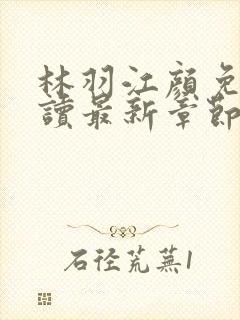 林羽江顏免
讀最新章節
石径荒蕪1